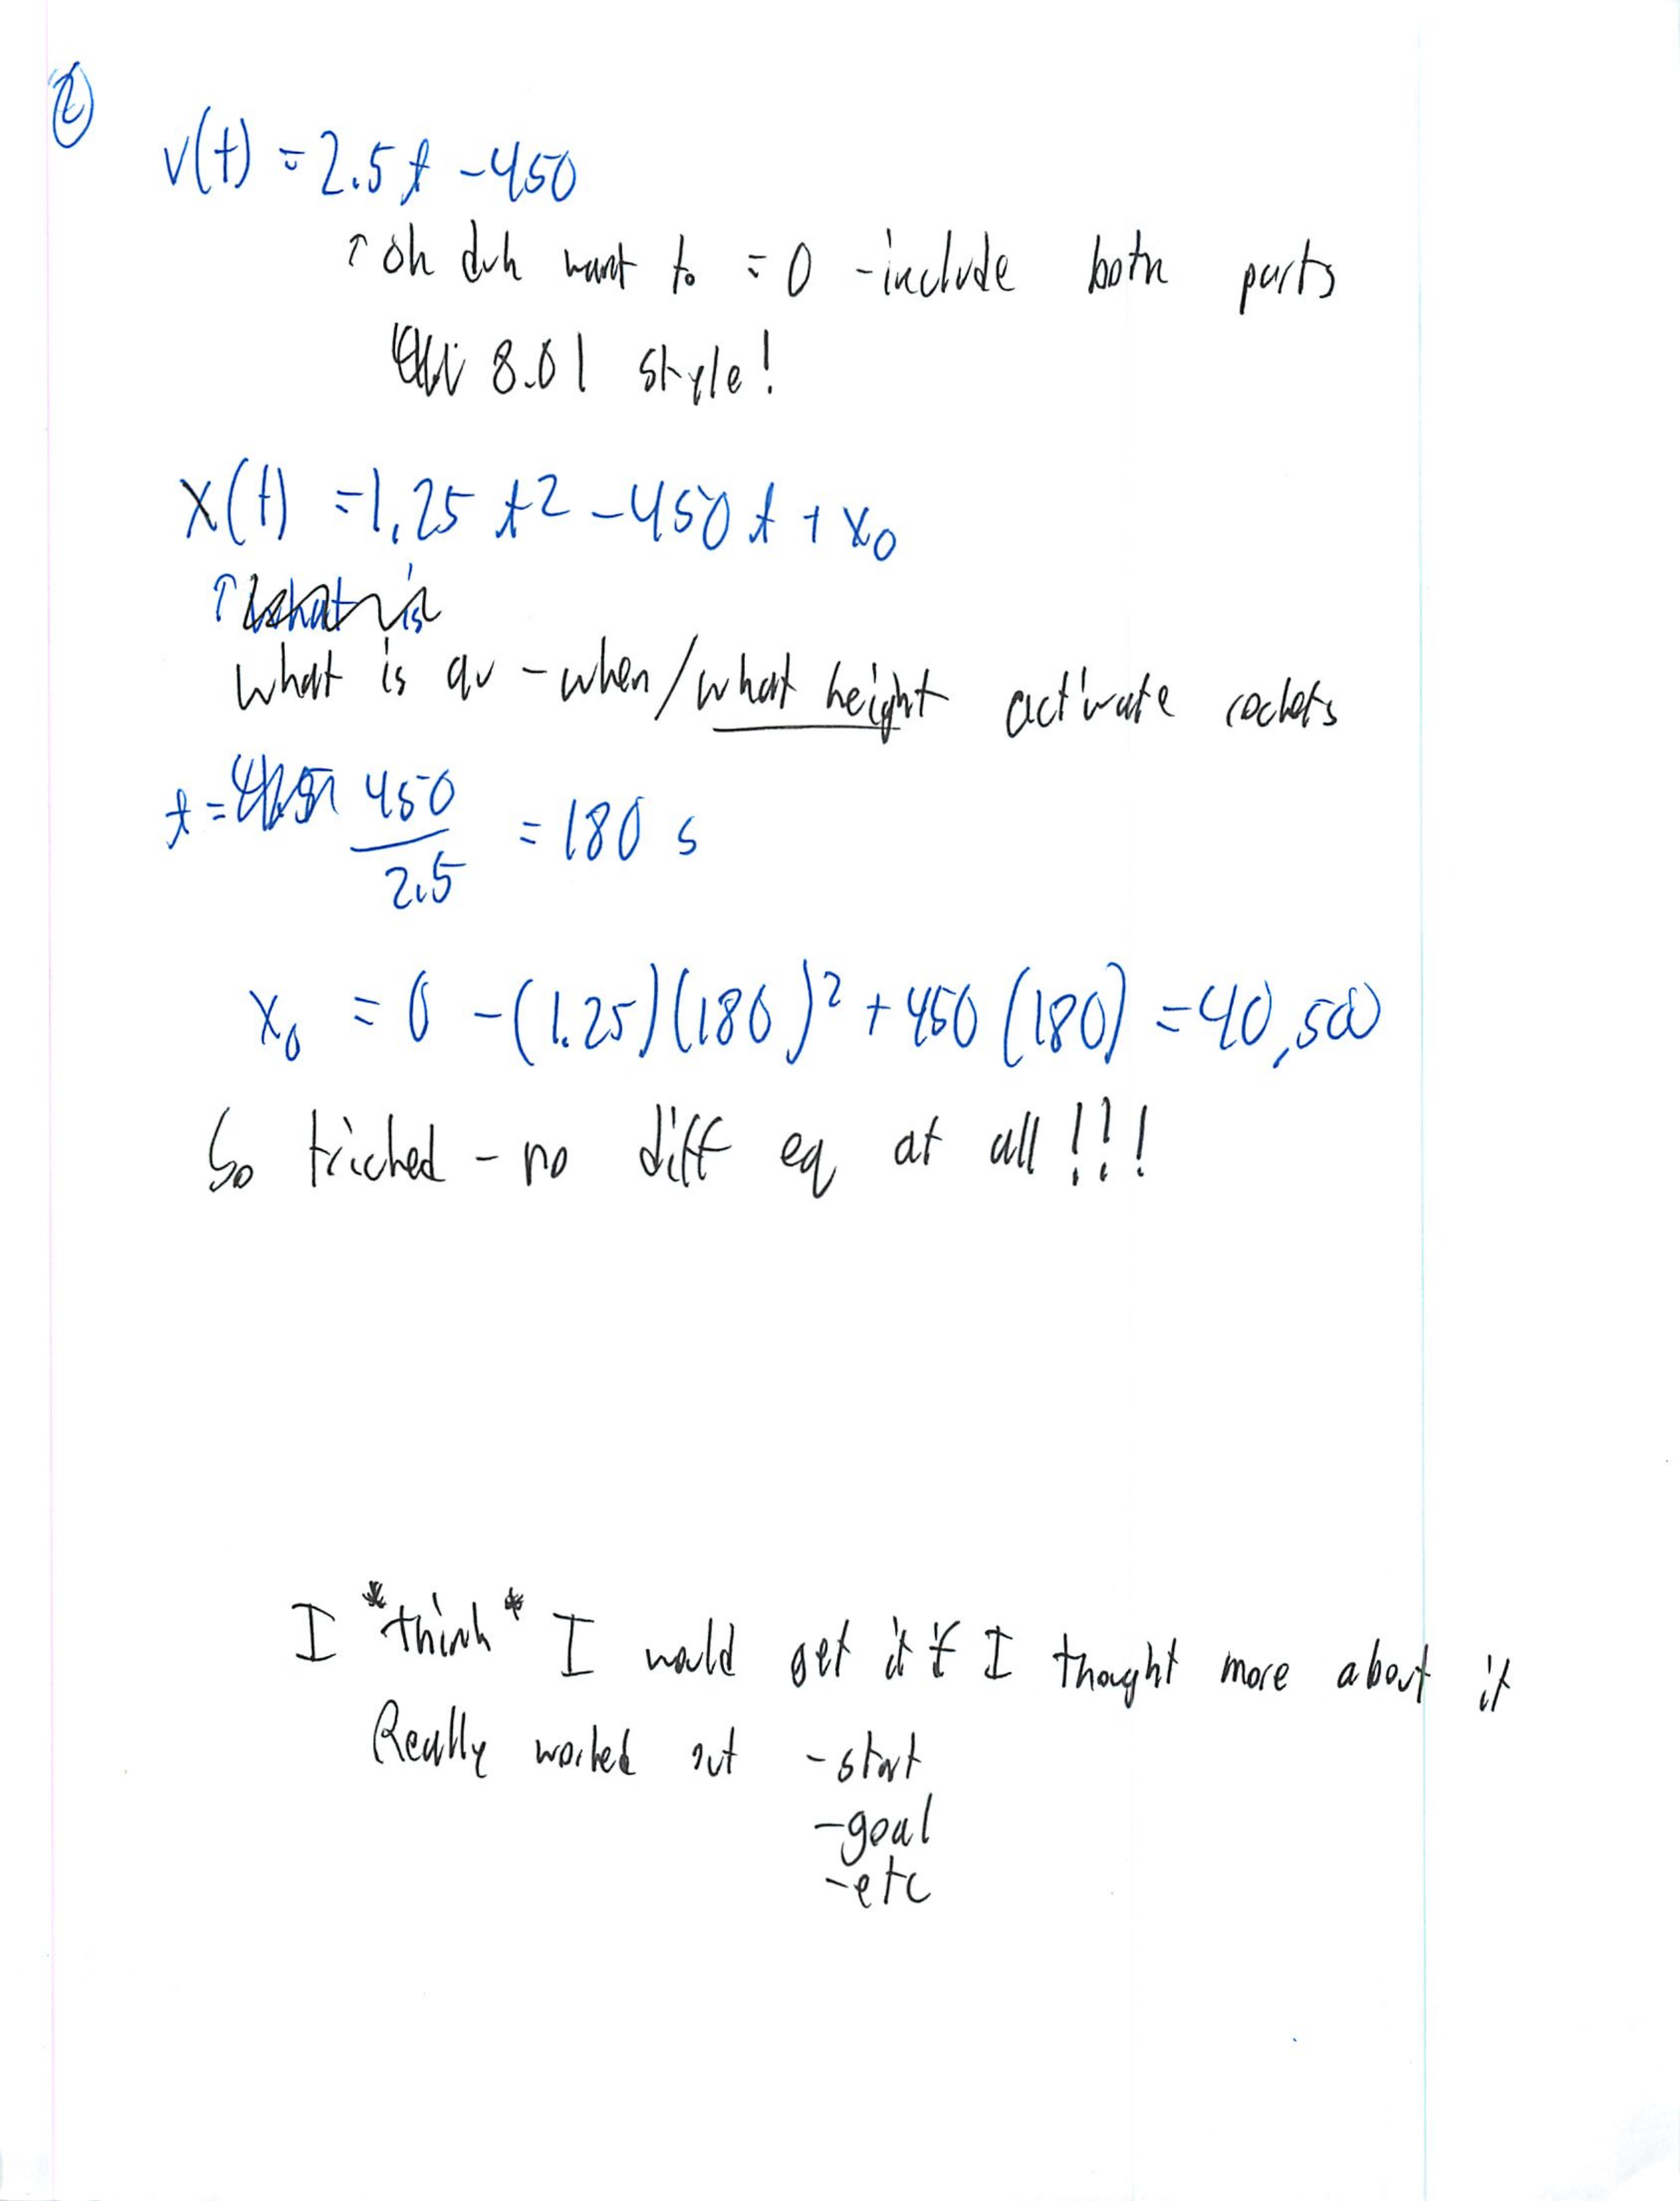 ②
v(t) = 2.5t - 450
↑ oh duh want to = 0 - include both parts
8.01 style!
x(t) = 1.25 t² - 450t + x₀
↑ what is
what is qu - when/what height activate rockets
t = 450/2.5 = 180 s
x₀ = 0 - (1.25)(180)² + 450(180) = 40,500
So tricked - no diff eq at all!!!
I *think* I would get it if I thought more about it
Really worked out - start
- goal
- etc